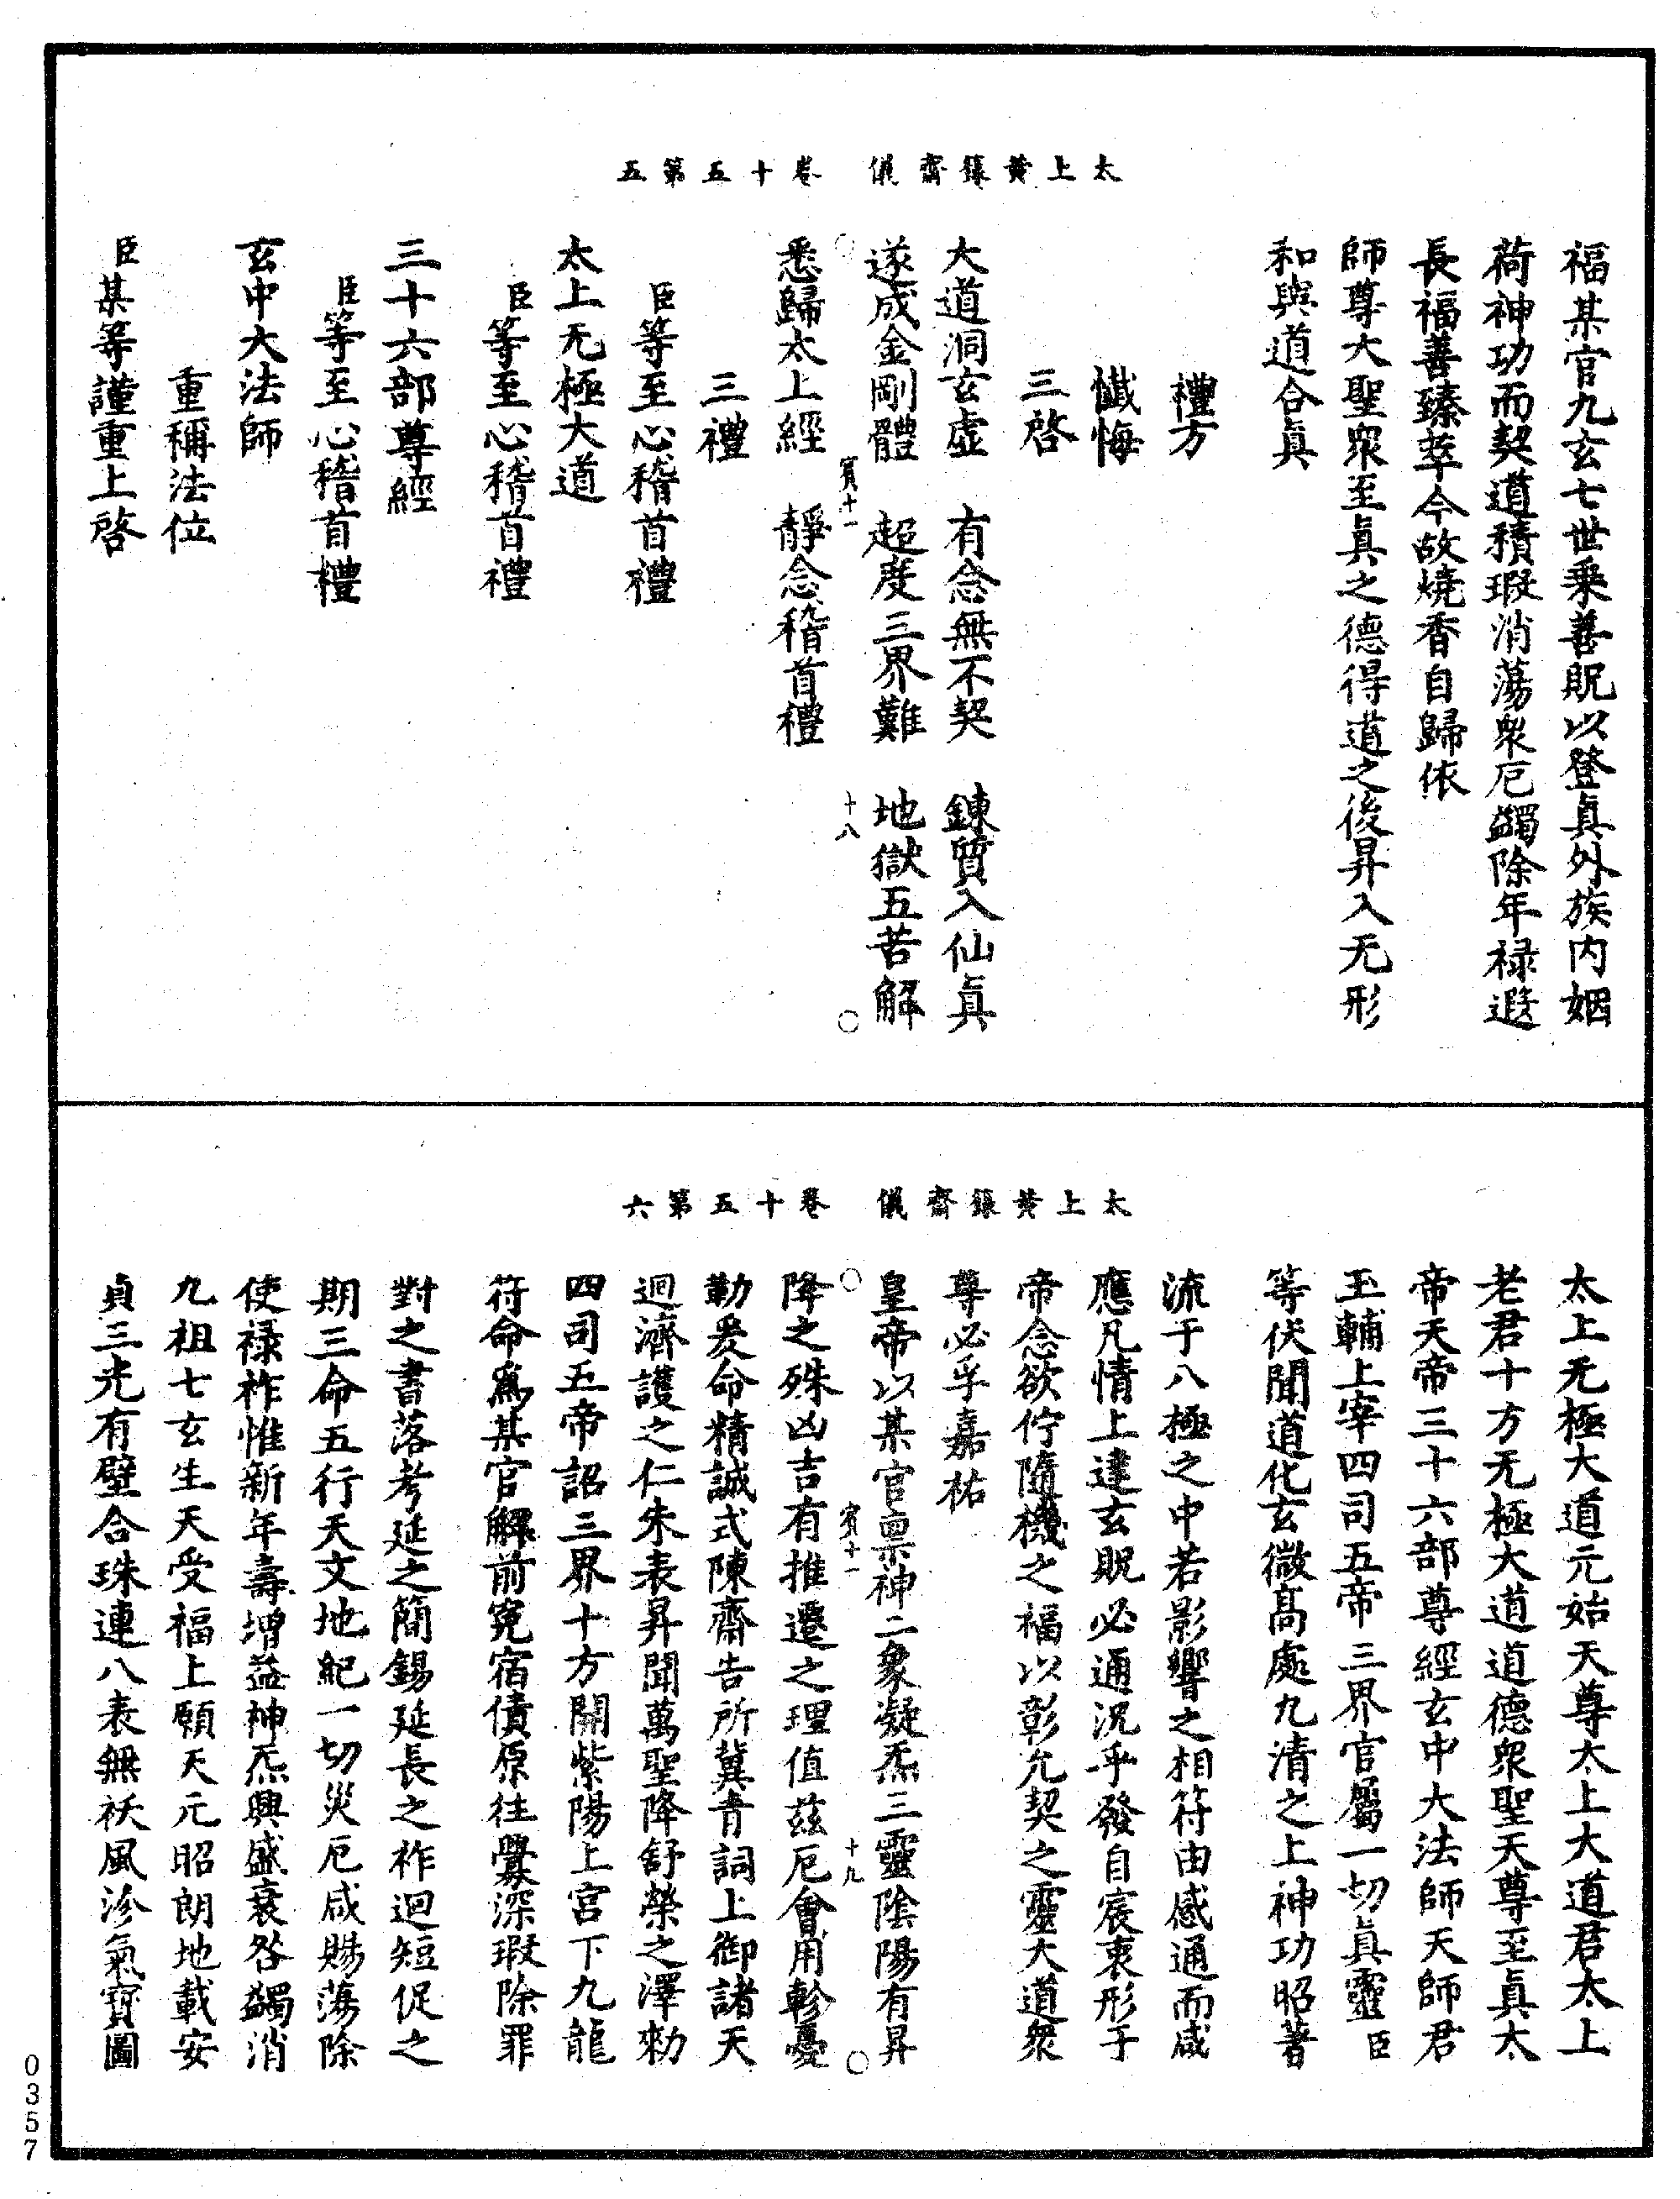 太上黃籙齋儀　卷十五第五
福某官九玄七世乘善貺以登眞外族內姻
荷神功而契道積瑕消蕩衆厄蠲除年祿遐
長福善臻萃今故燒香自歸依
師尊大聖衆至眞之德得道之後昇入无形
和與道合眞
禮方
懺悔
三啓
大道洞玄虛　有念無不契　鍊質入仙眞
遂成金剛體　超度三界難　地獄五苦解
賓十一　十八
悉歸太上經　靜念稽首禮
三禮
臣等至心稽首禮
太上无極大道
臣等至心稽首禮
三十六部尊經
臣等至心稽首禮
玄中大法師
重稱法位
臣某等謹重上啓
太上黃籙齋儀　卷十五第六
太上无極大道元始天尊太上大道君太上
老君十方无極大道道德衆聖天尊至眞太
帝天帝三十六部尊經玄中大法師天師君
玉輔上宰四司五帝三界官屬一切眞靈臣
等伏聞道化玄微高處九清之上神功昭著
流于八極之中若影響之相符由感通而咸
應凡情上達玄貺必通況乎發自宸衷形于
帝念欲佇隨機之福以彰允契之靈大道衆
尊必孚嘉祐
皇帝以某官禀神二象凝炁三靈陰陽有昇
賓十一　十九
降之殊凶吉有推遷之理值茲厄會用軫憂
勤爰命精誠式陳齋告所冀青詞上御諸天
迴濟護之仁朱表昇聞萬聖降舒榮之澤勑
四司五帝詔三界十方開紫陽上宮下九龍
符命爲某官解前寃宿債原往釁深瑕除罪
對之書落考延之簡錫延長之祚迴短促之
期三命五行天文地紀一切災厄咸賜蕩除
使祿祚惟新年壽增益神炁興盛衰咎蠲消
九祖七玄生天受福上願天元昭朗地載安
貞三光有璧合珠連八表無祅風沴氣寶圖
0357